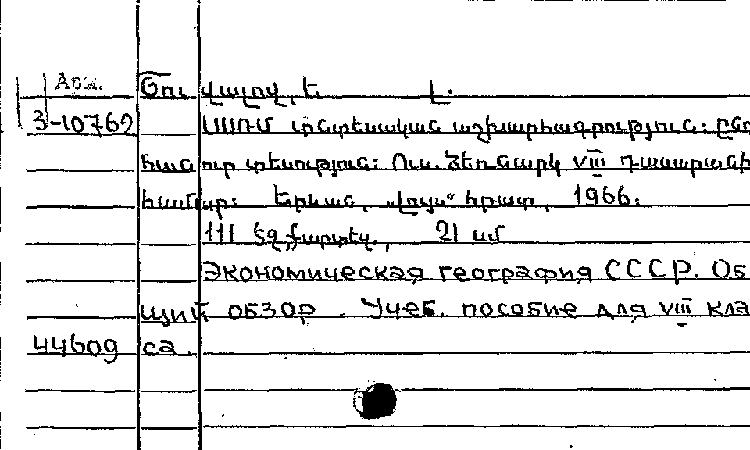 Арм. Ծու վալով, Ե Լ.
3-10769 ՍՍՌՄ տնտեսական աշխարհագրություն: ընդ
հանուր տեսություն: Ուս. ձեռնարկ VIII դասարանի
համար: Երևան, „Լույս“ հրատ, 1966.
111 էջ, քարտեզ., 21 սմ
Экономическая география СССР. Об
щий обзор. Учеб. пособие для VIII кла
44609 са.